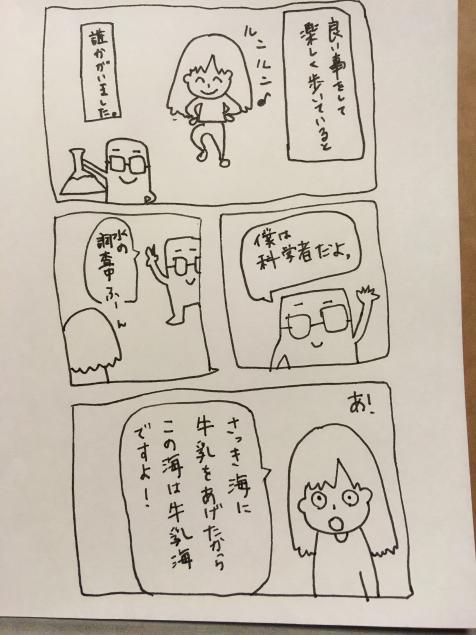 良い事をして
楽しく歩いていると
ルンルン♪
誰かがいました。
僕は
科学者だよ。
水の
調査中
ふーん
あ!
さっき海に
牛乳をあげたから
この海は牛乳海
ですよ!